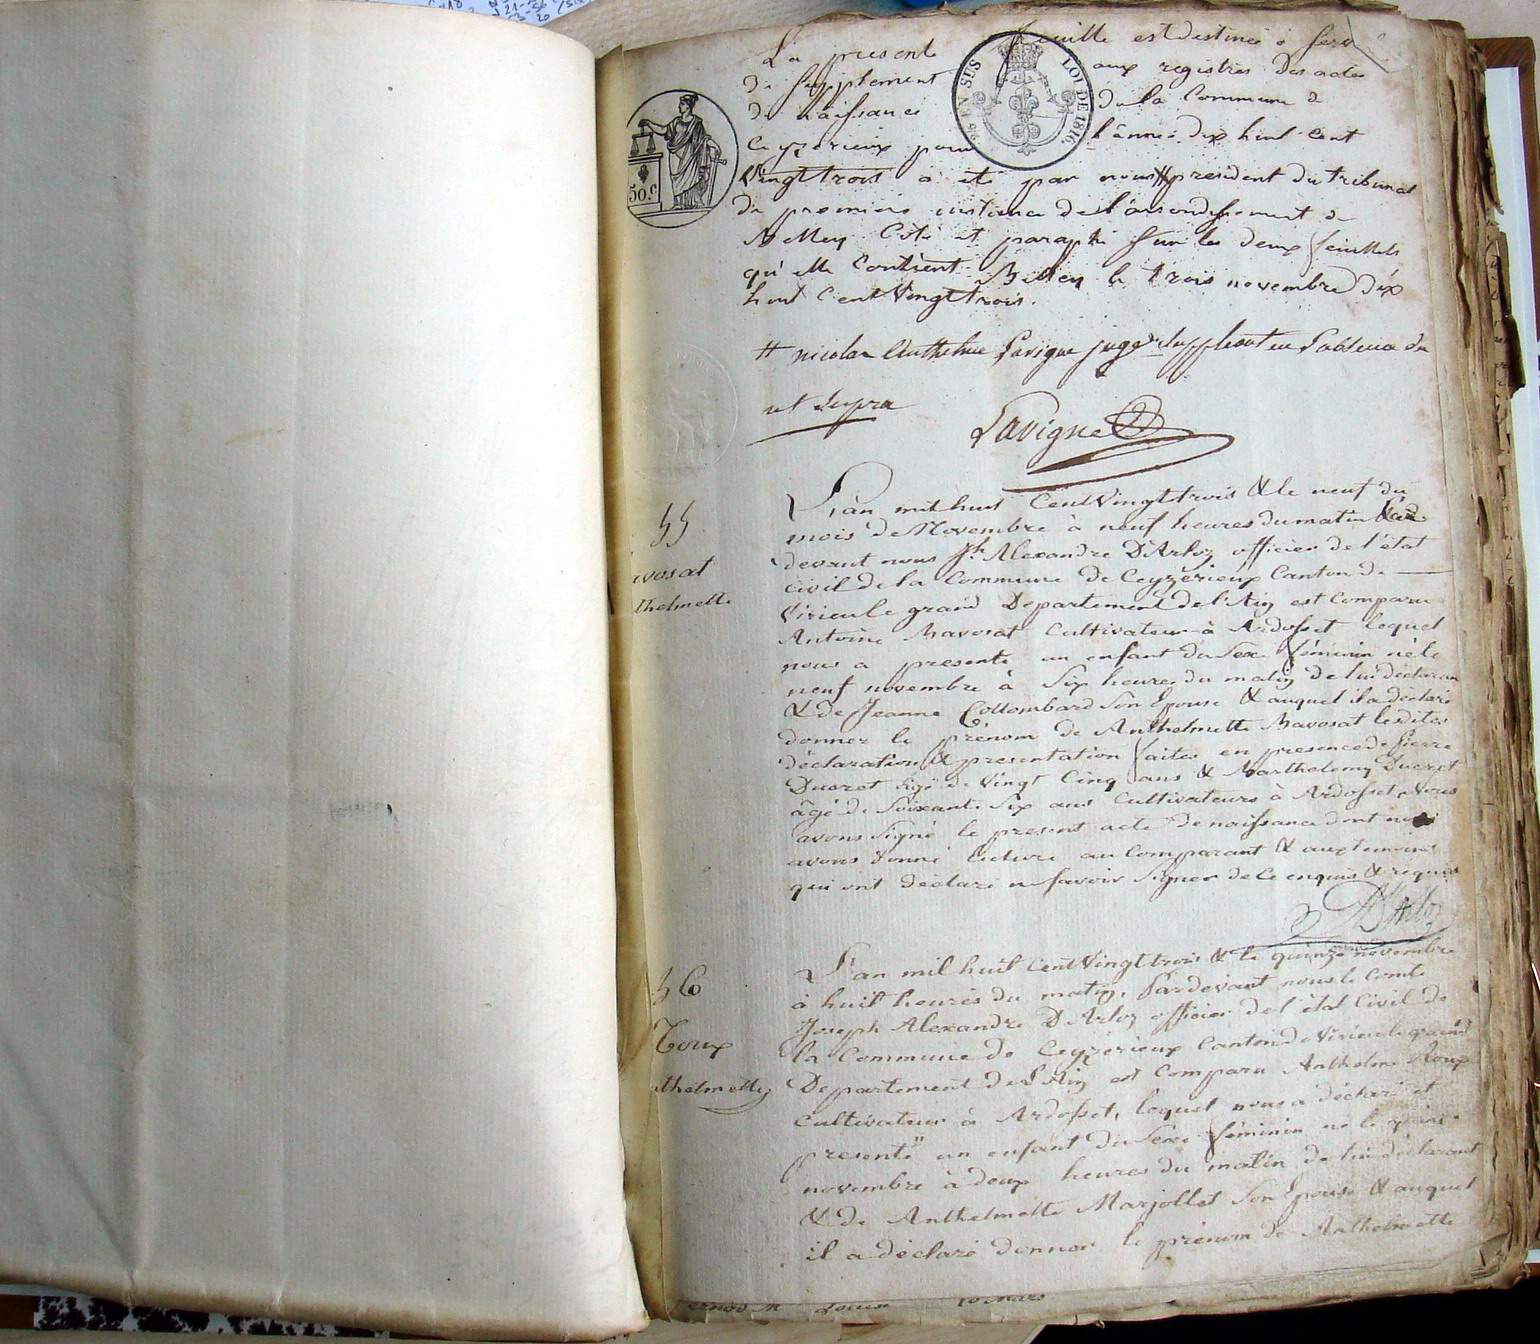 La presente feuille est destinée à servir
de supplement aux registres des actes
de naissance de la Commune de
Ceyzerieux pour l'année dix huit cent
Vingt trois a été par nous # president du tribunal
de premiere instance de l'arrondissement de
Belley Coté et paraphé sur les deux feuillets
qu'elle Contient Belley le trois novembre dix
huit Cent Vingt trois.
EN SUS LOI DE 1816.
50.c
# nicolas Anthelme Lavigne juge suppleant en l'absence du
ut supra
Lavigne
55
avosat
thelmette
L'an mil huit Cent Vingt trois & le neuf du
mois de Novembre à neuf heures du matin
devant nous Jh Alexandre D'Arloz officier de l'état
civil de la Commune de Ceyzérieux Canton de
Virieu le grand Departement de l'Ain est Comparu
Antoine Bavosat Cultivateur à Ardosset lequel
nous a presenté un enfant du sexe féminin né le
neuf novembre à Six heures du matin de lui déclarant
& de Jeanne Collombard Son Epouse & auquel il a déclaré
donner le prénom de Anthelmette Bavosat lesdites
déclaration & presentation faites en presence de Pierre
Ducret âgé de Vingt Cinq ans & Barthelemy Ducret
âgé de Soixante Six ans Cultivateurs à Ardosset, Nous
avons Signé le present acte de naissance dont nous
avons donné lecture au Comparant & aux temoins
qui ont déclaré ne savoir Signer de Ce enquis & requis
D'Arloz
56
Roux
thelmette
L'an mil huit Cent Vingt trois & le quinze novembre
à huit heures du matin, Pardevant nous le Comte
Joseph Alexandre D'Arloz officier de l'état Civil de
la Commune de Ceyzérieux Canton de Virieu le grand
Departement de l'Ain est Comparu Anthelme Roux
Cultivateur à Ardosset, lequel nous a déclaré et
presenté un enfant du Sexe féminin né le quinze
novembre à deux heures du matin de lui déclarant
& de Anthelmette Marjollet Son Epouse & auquel
il a déclaré donner le prénom de Anthelmette
Louise 10 Mars